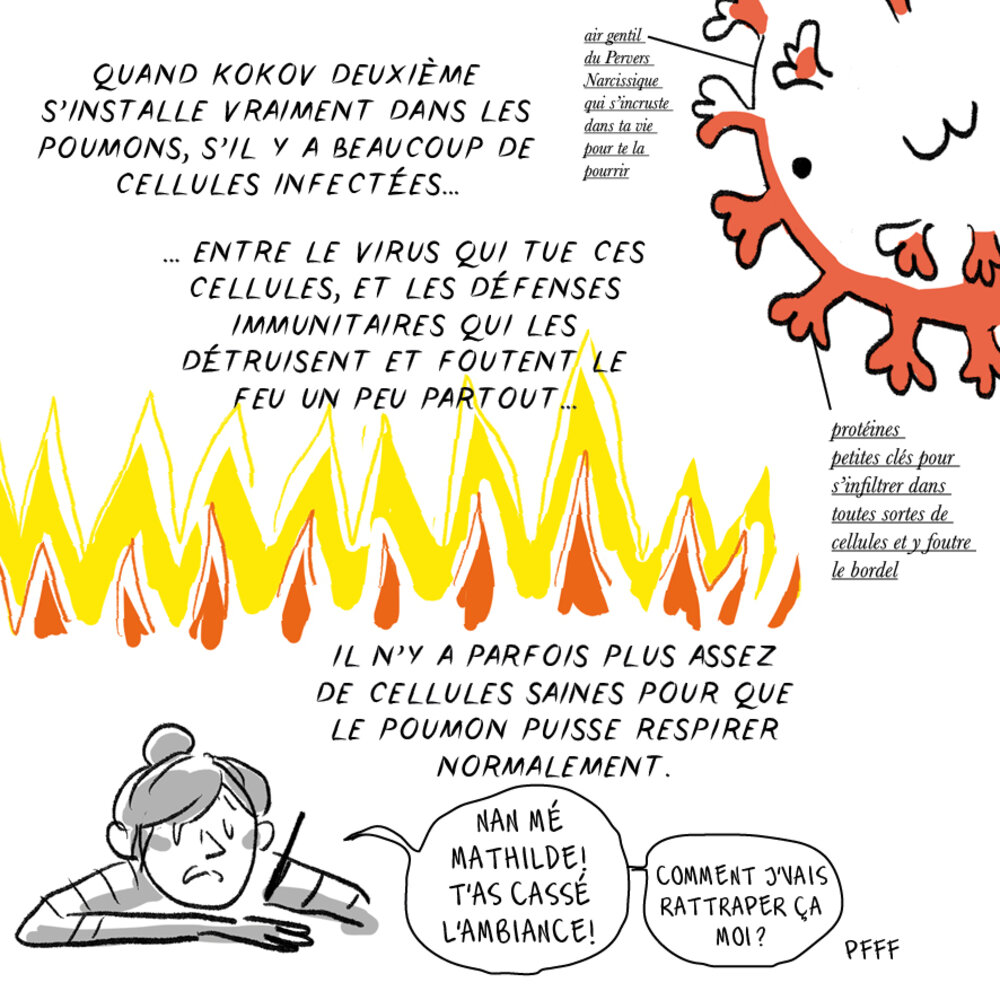 QUAND KOKOV DEUXIÈME
S'INSTALLE VRAIMENT DANS LES
POUMONS, S'IL Y A BEAUCOUP DE
CELLULES INFECTÉES...
air gentil
du Pervers
Narcissique
qui s'incruste
dans ta vie
pour te la
pourrir
... ENTRE LE VIRUS QUI TUE CES
CELLULES, ET LES DÉFENSES
IMMUNITAIRES QUI LES
DÉTRUISENT ET FOUTENT LE
FEU UN PEU PARTOUT...
protéines
petites clés pour
s'infiltrer dans
toutes sortes de
cellules et y foutre
le bordel
IL N'Y A PARFOIS PLUS ASSEZ
DE CELLULES SAINES POUR QUE
LE POUMON PUISSE RESPIRER
NORMALEMENT.
NAN MÉ
MATHILDE!
T'AS CASSÉ
L'AMBIANCE!
COMMENT J'VAIS
RATTRAPER ÇA
MOI?
PFFF